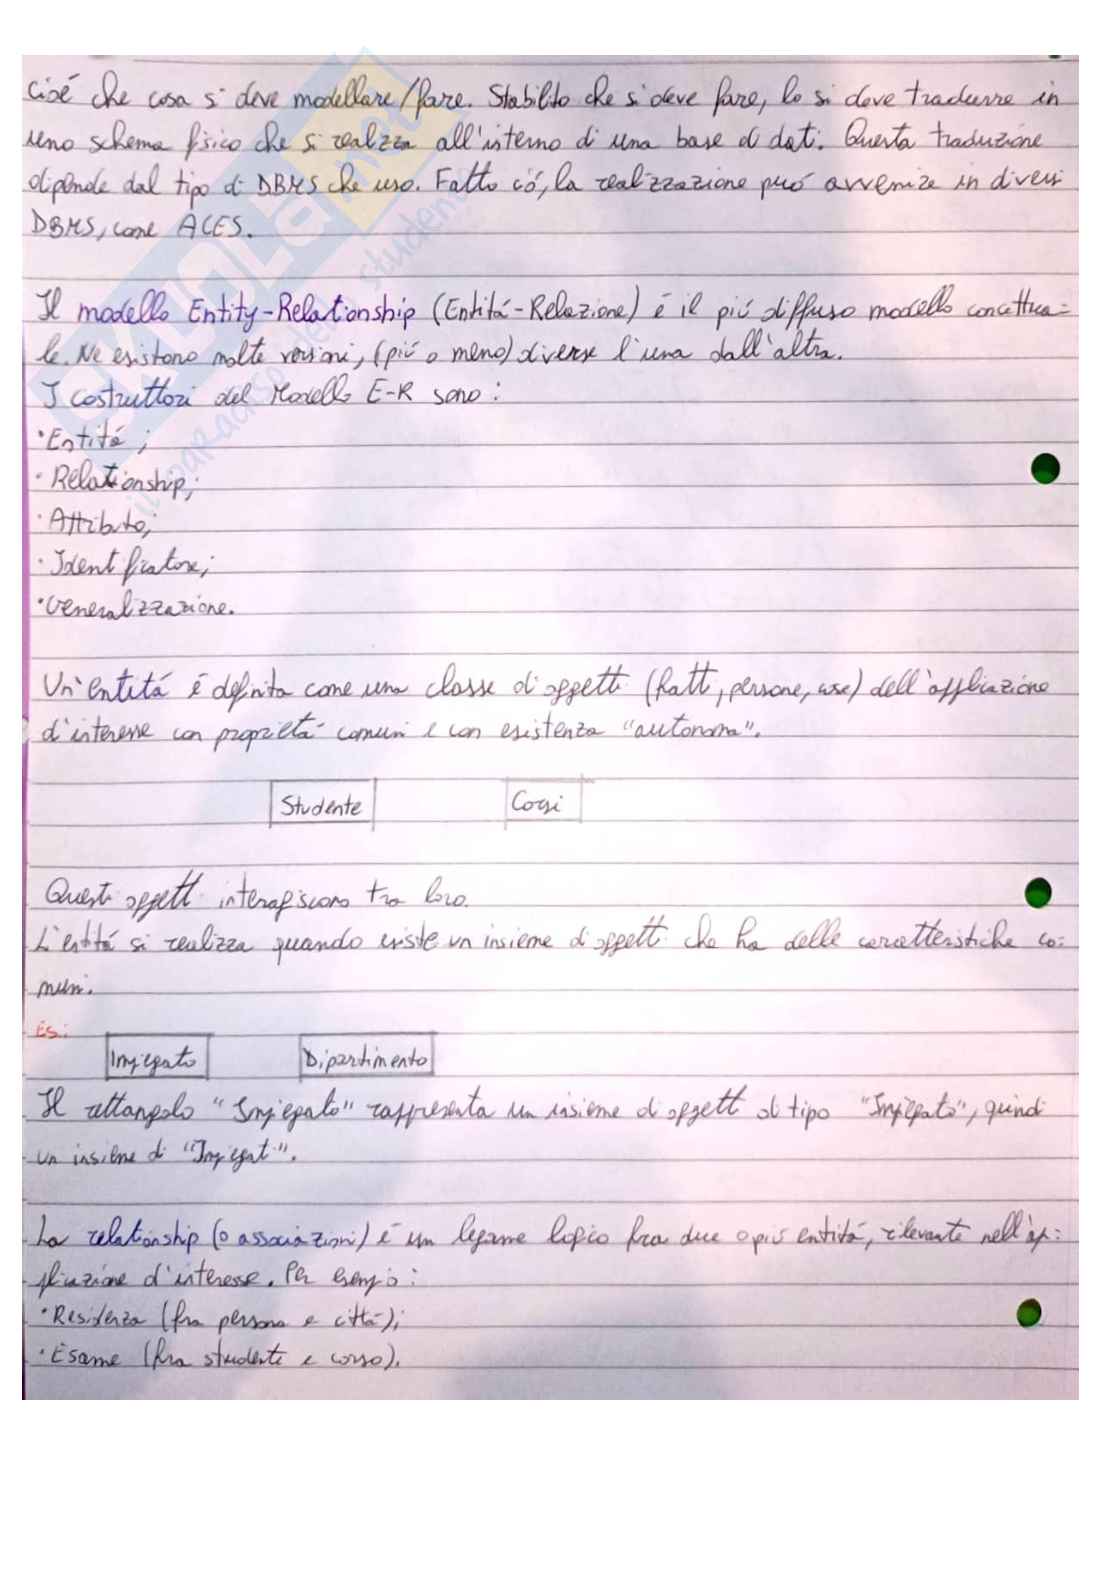 cioé che cosa si deve modellare/fare. Stabilito che si deve fare, lo si deve tradurre in
uno schema fisico che si realizza all'interno di una base di dati. Questa traduzione
dipende dal tipo di DBMS che uso. Fatto ció, la realizzazione puó avvenire in diversi
DBMS, come ACES.
Il modello Entity-Relationship (Entitá-Relazione) é il piú diffuso modello concettua=
le. Ne esistono molte versioni, (piú o meno) diverse l'una dall'altra.
I costruttori del Modello E-R sono:
·Entitá;
·Relationship;
·Attributo;
·Identificatore;
·Generalizzazione.
Un'entitá é definita come una classe di oggetti (fatti, persone, cose) dell'applicazione
d'interesse con proprietá comuni e con esistenza "autonoma".
Studente Corsi
Questi oggetti interagiscono tra loro.
L'entitá si realizza quando esiste un insieme di oggetti che ha delle caratteristiche co=
muni.
Es:
Impiegato Dipartimento
Il rettangolo "Impiegato" rappresenta un insieme di oggetti di tipo "Impiegato", quindi
un insieme di "Impiegati".
La relationship (o associazioni) é un legame logico fra due o piú entitá, rilevante nell'ap=
plicazione d'interesse. Per esempio:
·Residenza (fra persona e cittá);
·Esame (fra studente e corso).